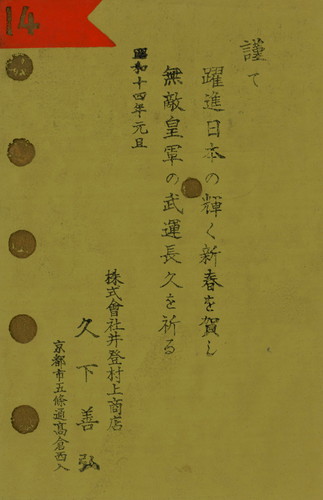 14
謹て
躍進日本の輝く新春を賀し
無敵皇軍の武運長久を祈る
昭和十四年元旦
株式會社井登村上商店
久下善弘
京都市五條通高倉西入